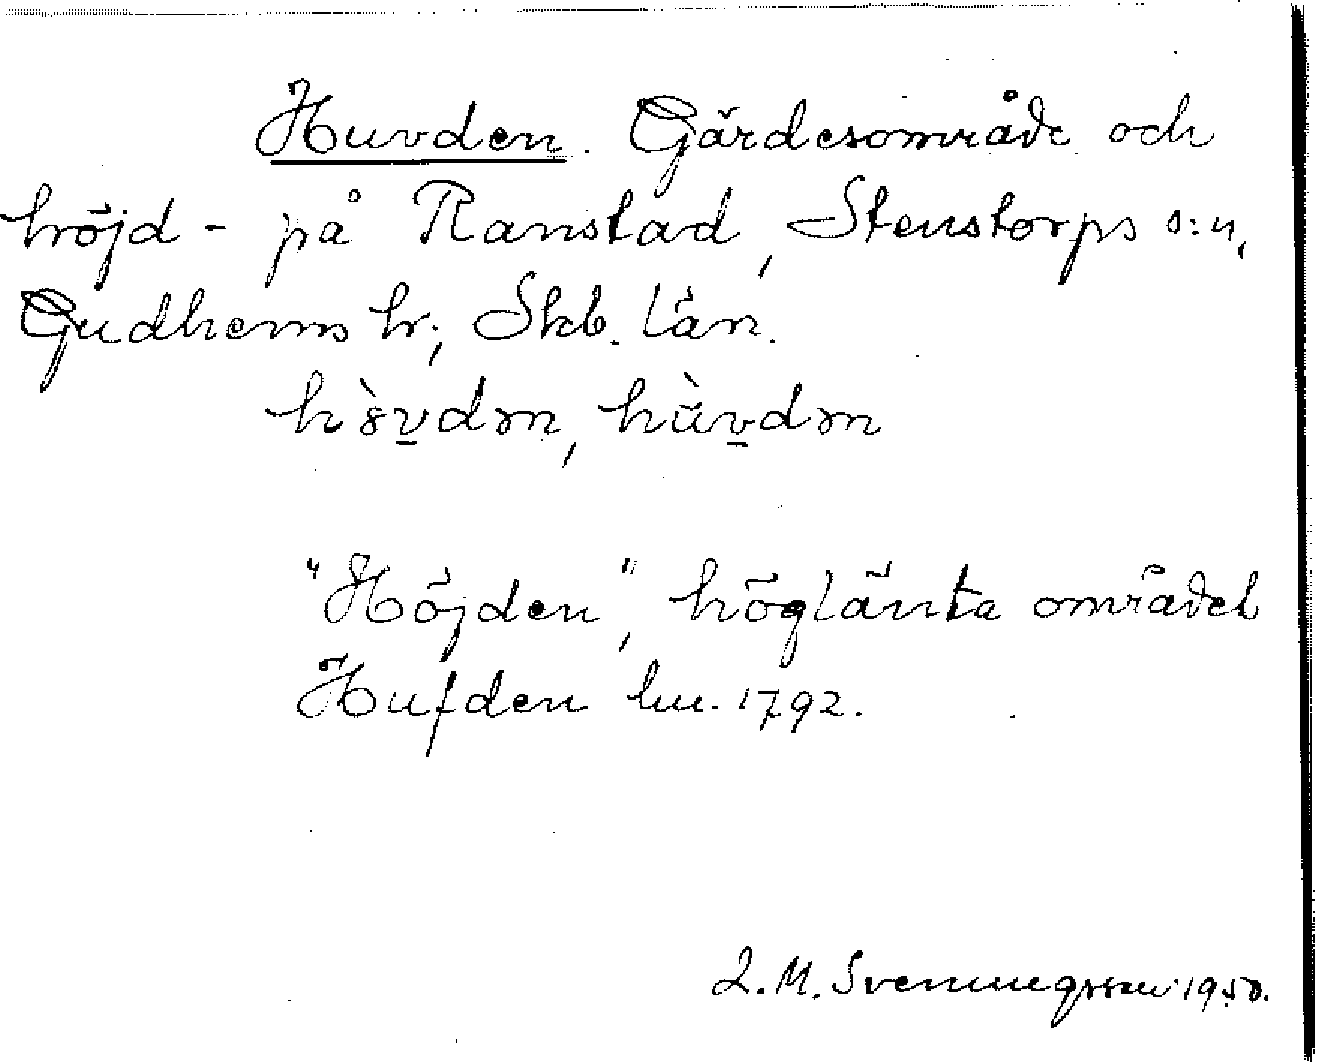 Huvden. Gärdesområde och
höjd - på Ranstad, Stenstorps s:n,
Gudhems hr; Skb. län.
hȣ̀v̲dən, hùv̲dən
"Höjden", höglänta området
Hufden lm. 1792.
L. M. Svenungsson 1950.